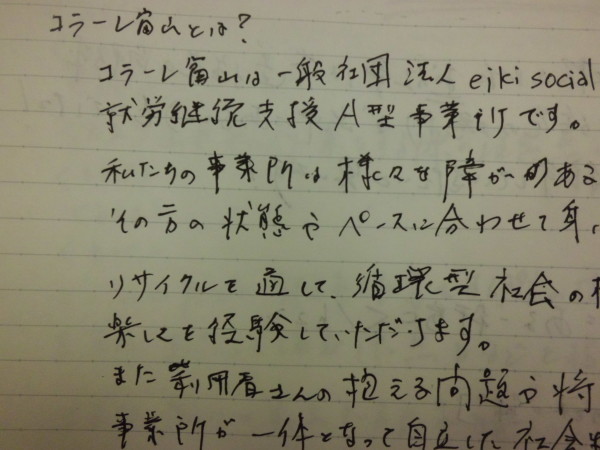 コラーレ富山とは?
コラーレ富山は一般社団法人 eiki social
就労継続支援A型事業所です。
私たちの事業所は様々な障がいのある
その方の状態やペースに合わせて身
リサイクルを通して、循環型社会の
楽しさを経験していただけます。
また利用者さんの抱える問題や将
事業所が一体となって自立した社会